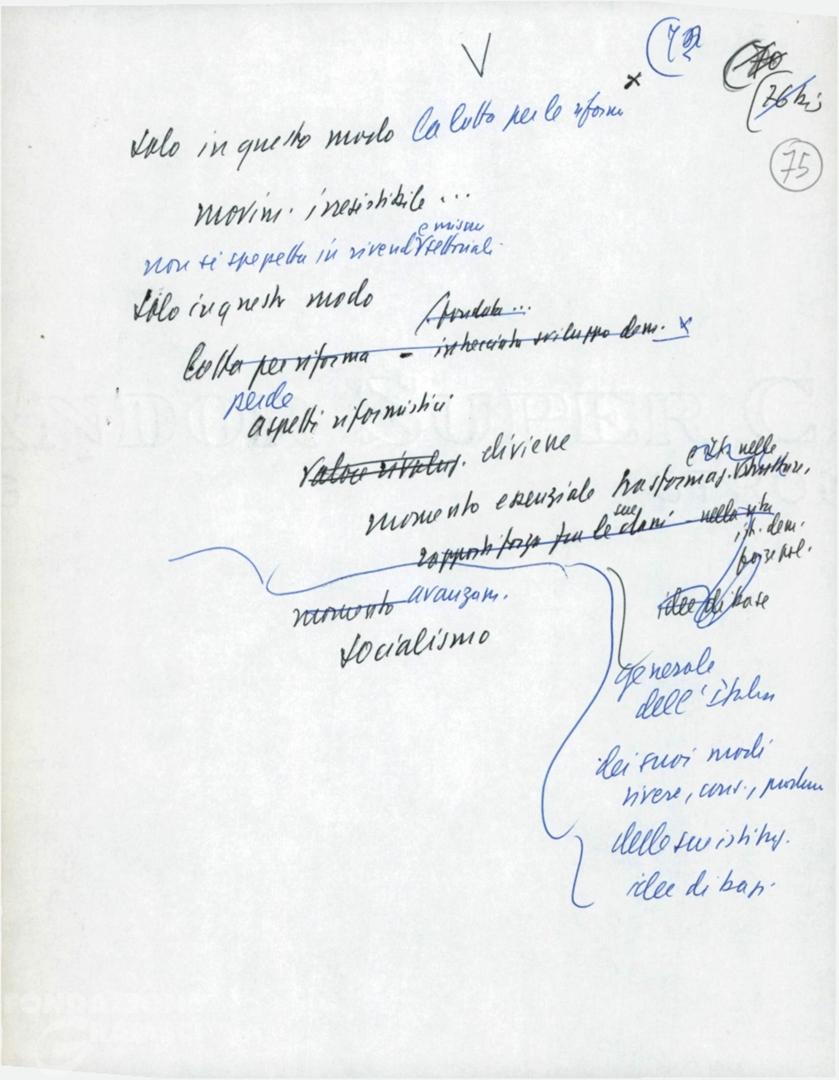 (72
(70
(76 bis
75
solo in questo modo la lotta per le riforme
movim. irresistibile ...
e misure
non si spezzetta in rivend. settoriali
solo in questo modo
fondata ...
lotta per riforma - intrecciata sviluppo dem. x
perde
aspetti riformistici
valore rivoluz. diviene
nelle
momento essenziale trasformaz. strutture,
sue
rapporti forza fra le classi - nella vita
ist. dem.
forze pol.
momento avanzam. idee di base
socialismo
generale
dell'Italia
dei suoi modi
vivere, cons., produrre
delle sue istituz.
idee di base